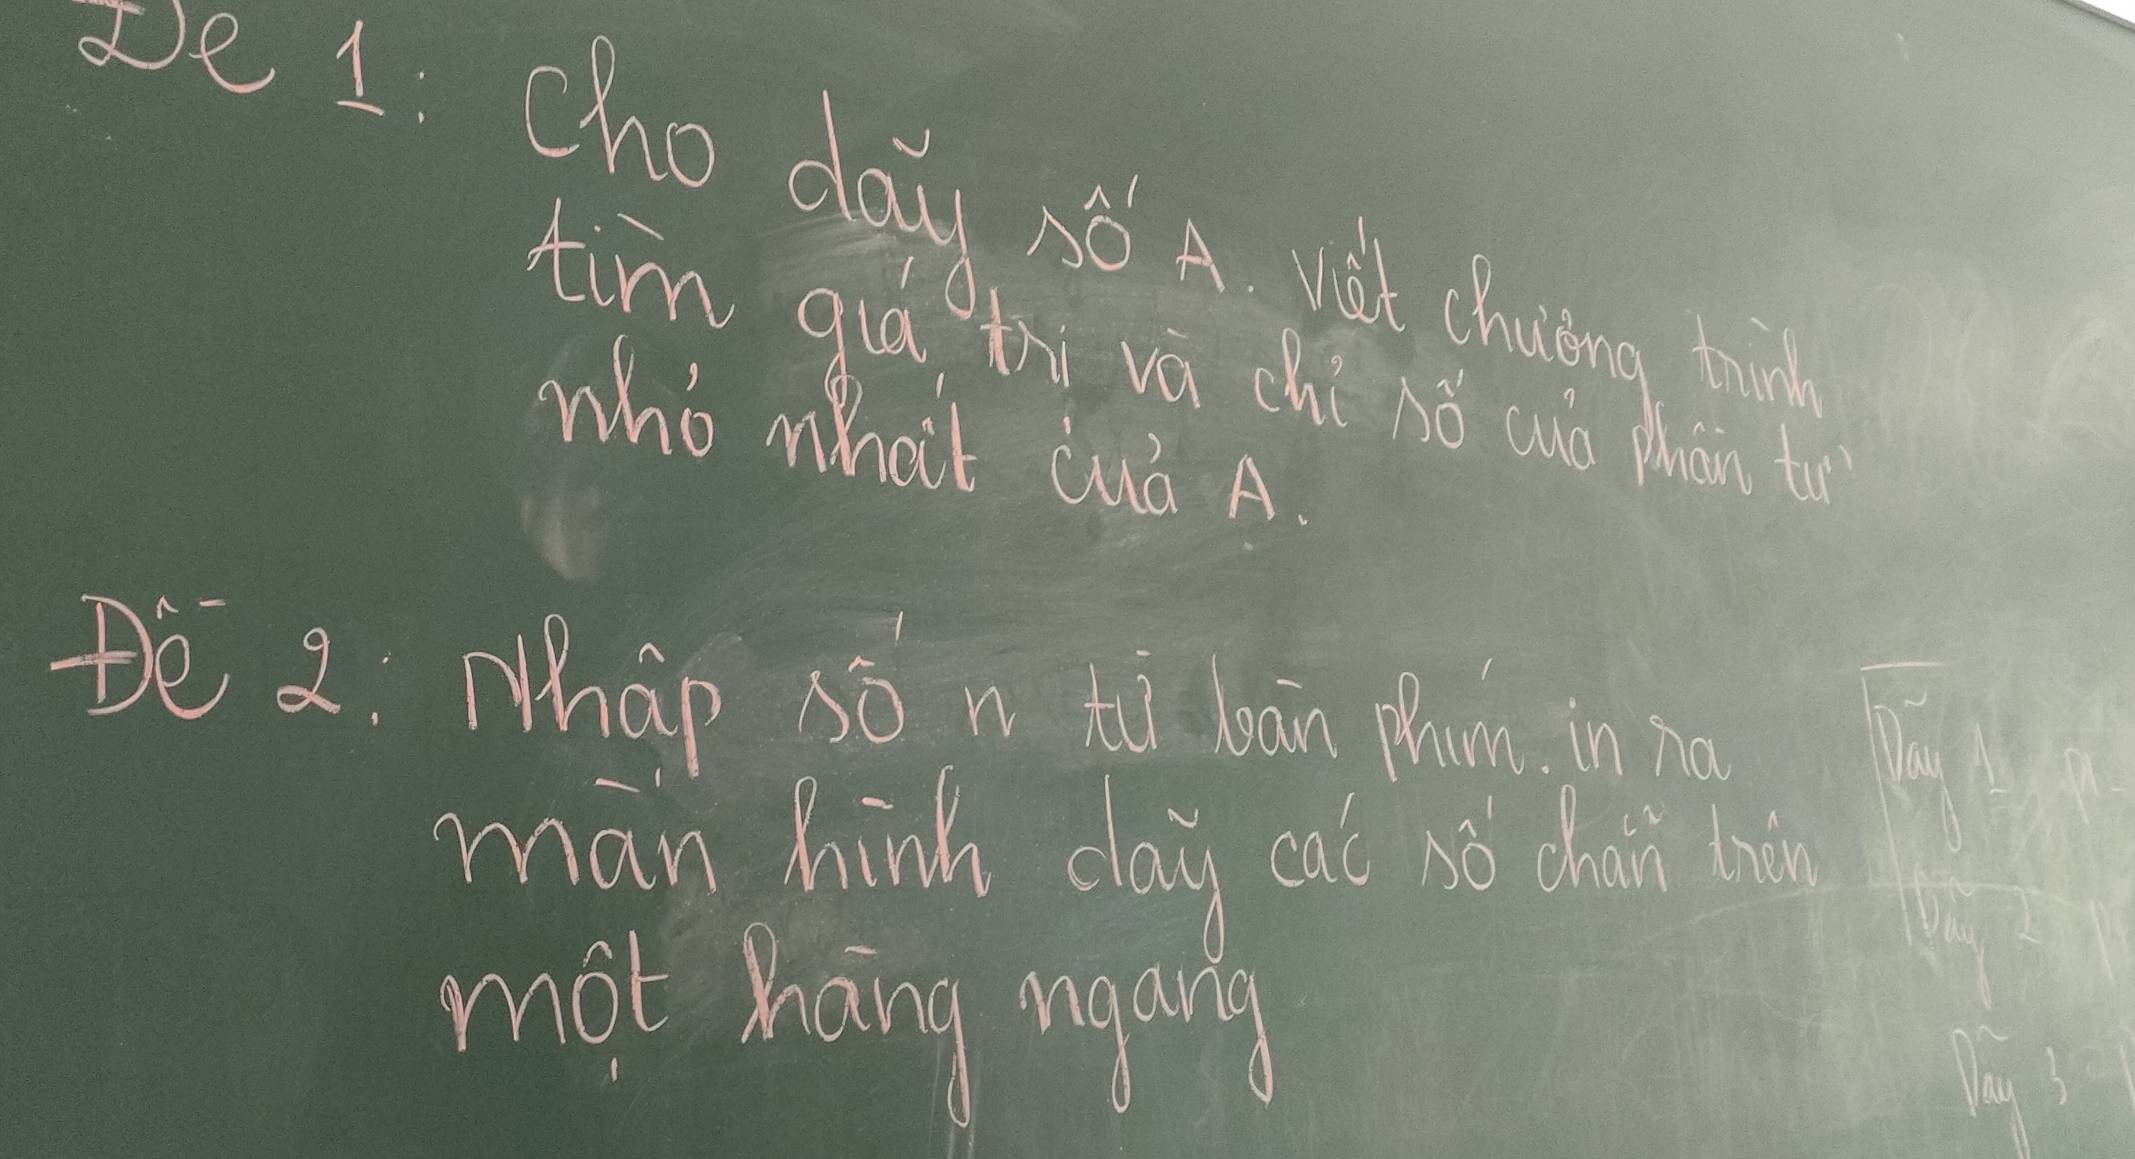 Đề 1: Cho dãy số A. Viết chương trình
tìm giá trị và chỉ số của phần tử
nhỏ nhất của A.
Đề 2: Nhập số n từ bàn phím. in ra
màn hình dãy các số chẵn trên
một hàng ngang
Dãy 1
Dãy 2
Dãy 3